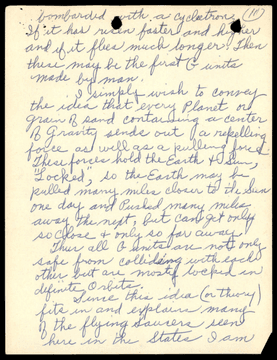 bombarded with a cyclotrons,
If it has risen faster and higher
and if it flies much longer! Then
these may be the first G units
made by man.
I simply wish to convey
the idea that every Planet or
grain of sand containing a center
of Gravity sends out a repelling
force as well as a pulling force.
These forces hold the Earth & Sun,
"Locked", so the Earth may be
pulled many miles closer to the Sun
one day and Pushed many miles
away the next, but can get only
so close & only so far away.
Thus all G units are not only
safe from colliding with each
other but are mostly locked in
definite Orbits.
Since this idea (or theory)
fits in and explains many
of the flying Saucers seen
here in the States I am